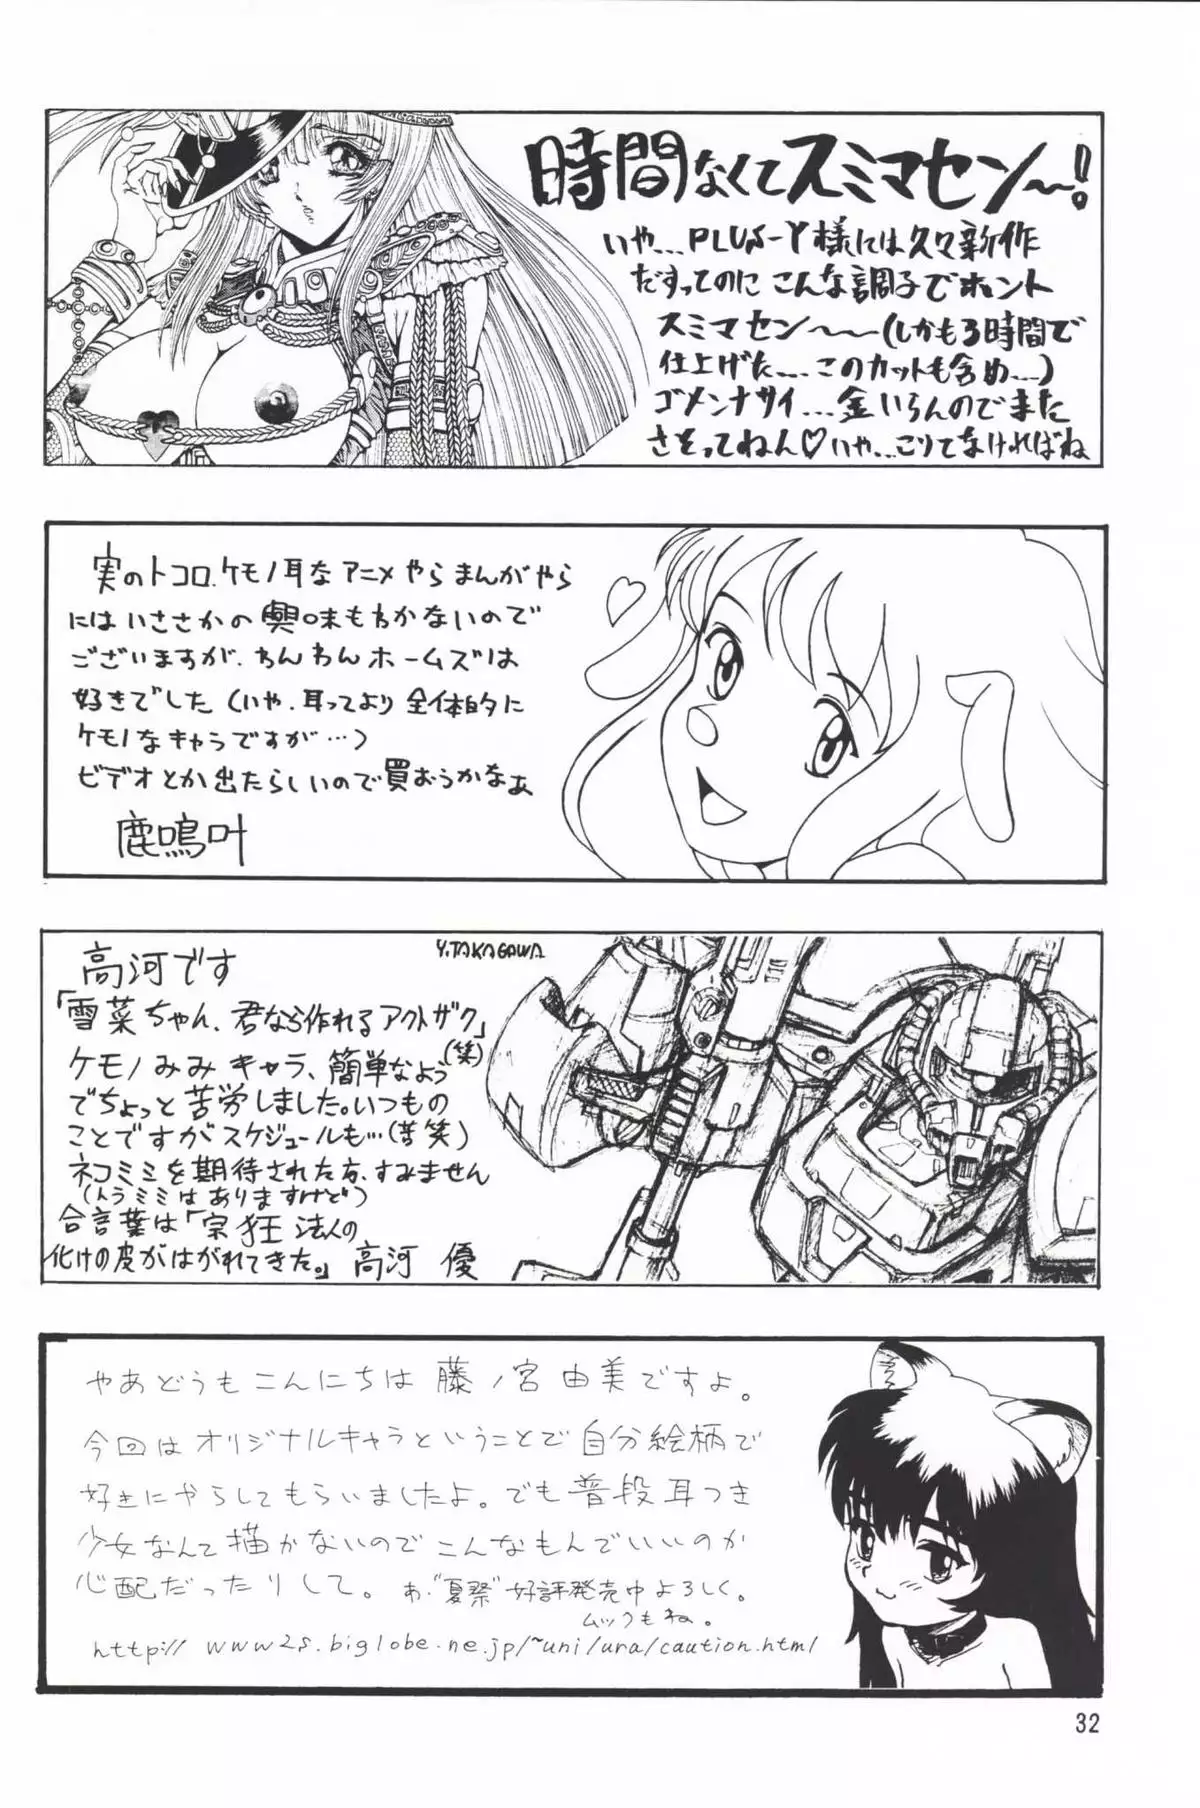 時間なくてスミマセン〜!
いや...PLUS-Y様には久々新作
だすってのに こんな調子でホント
スミマセン〜〜(しかも3時間で
仕上げた.... このカットも含め...)
ゴメンナサイ...金いらんのでまた
さそってねん♡いや...こりてなければね
実のトコロ、ケモノ耳なアニメやらまんがやら
にはいささかの興味もわかないので
ございますが、わんわんホームズは
好きでした(いや、耳ってより全体的に
ケモノなキャラですが…)
ビデオとか出たらしいので買おうかなぁ
鹿鳴叶
高河です
Y.TAKAGAWA
「雪菜ちゃん、君なら作れるアクトザク」
(笑)
ケモノみみキャラ、簡単なよう
でちょっと苦労しました。いつもの
ことですがスケジュールも…(苦笑)
ネコミミを期待された方、すみません
(トラミミはありますけど)
合言葉は「宗狂法人の
化けの皮がはがれてきた。」 高河 優
やあどうもこんにちは 藤ノ宮由美ですよ。
今回はオリジナルキャラということで自分絵柄で
好きにやらしてもらいましたよ。でも普段耳つき
少女なんて描かないのでこんなもんでいいのか
心配だったりして。 あ、"夏祭"好評発売中よろしく。
ムックもね。
http://www2s.biglobe.ne.jp/~uni/ura/caution.html
32